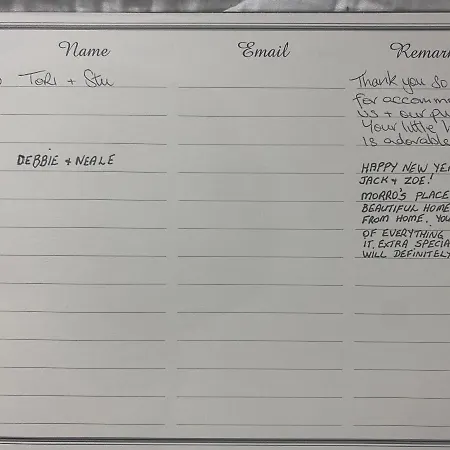 Name Email Remar
Tori + Stu
Thank you so
for accomm
us + our pu
Your little
is adorable
DEBBIE + NEALE
HAPPY NEW YEA
JACK + ZOE!
MORRO'S PLACE
BEAUTIFUL HOME
FROM HOME. YOU
OF EVERYTHING
IT. EXTRA SPECIA
WILL DEFINITELY